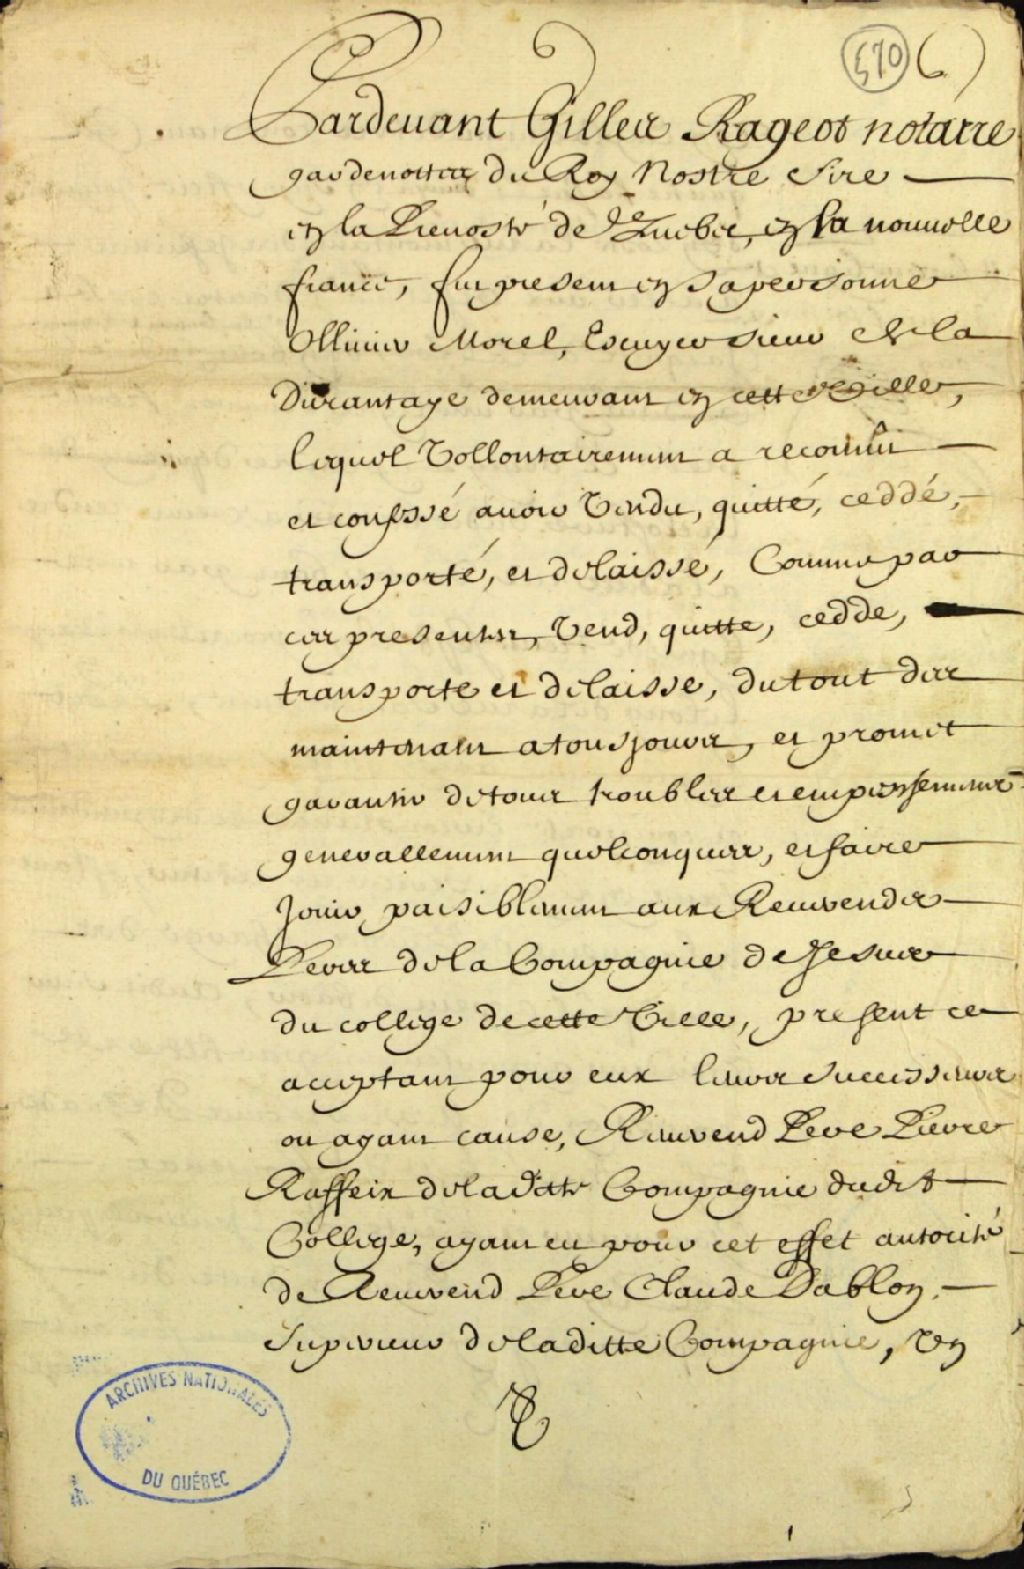 570 6)
Pardevant Gilles Rageot notaire
gardenottes du Roy Nostre Sire
en la Prevosté de Quebec, en la nouvelle
france, fut present en sa personne
Ollivier Morel, Escuyer sieur de la
Durantaye demeurant en cette Ville,
lequel Vollontairement a reconnu
et confessé avoir Vendu, quitté, ceddé,
transporté, et delaissé, Comme par
ces presentes, Vend, quitte, cedde,
transporte et delaisse, du tout des
maintenant a tousjours, et promet
garantir de tous troubles et empeschemens
generallement quelconques, et faire
Jouir paisiblement aux Reverends
Peres de la Compagnie de Jesus
du college de cette Ville, present ce
acceptant pour eux leurs successeurs
ou ayant cause, Reverend Pere Pierre
Raffeix de la ditte Compagnie dudit
College, ayant eu pour cet effet autorité
de Reverend Pere Claude Dablon
Superieur de la ditte Compagnie, Un
ARCHIVES NATIONALES
DU QUÉBEC